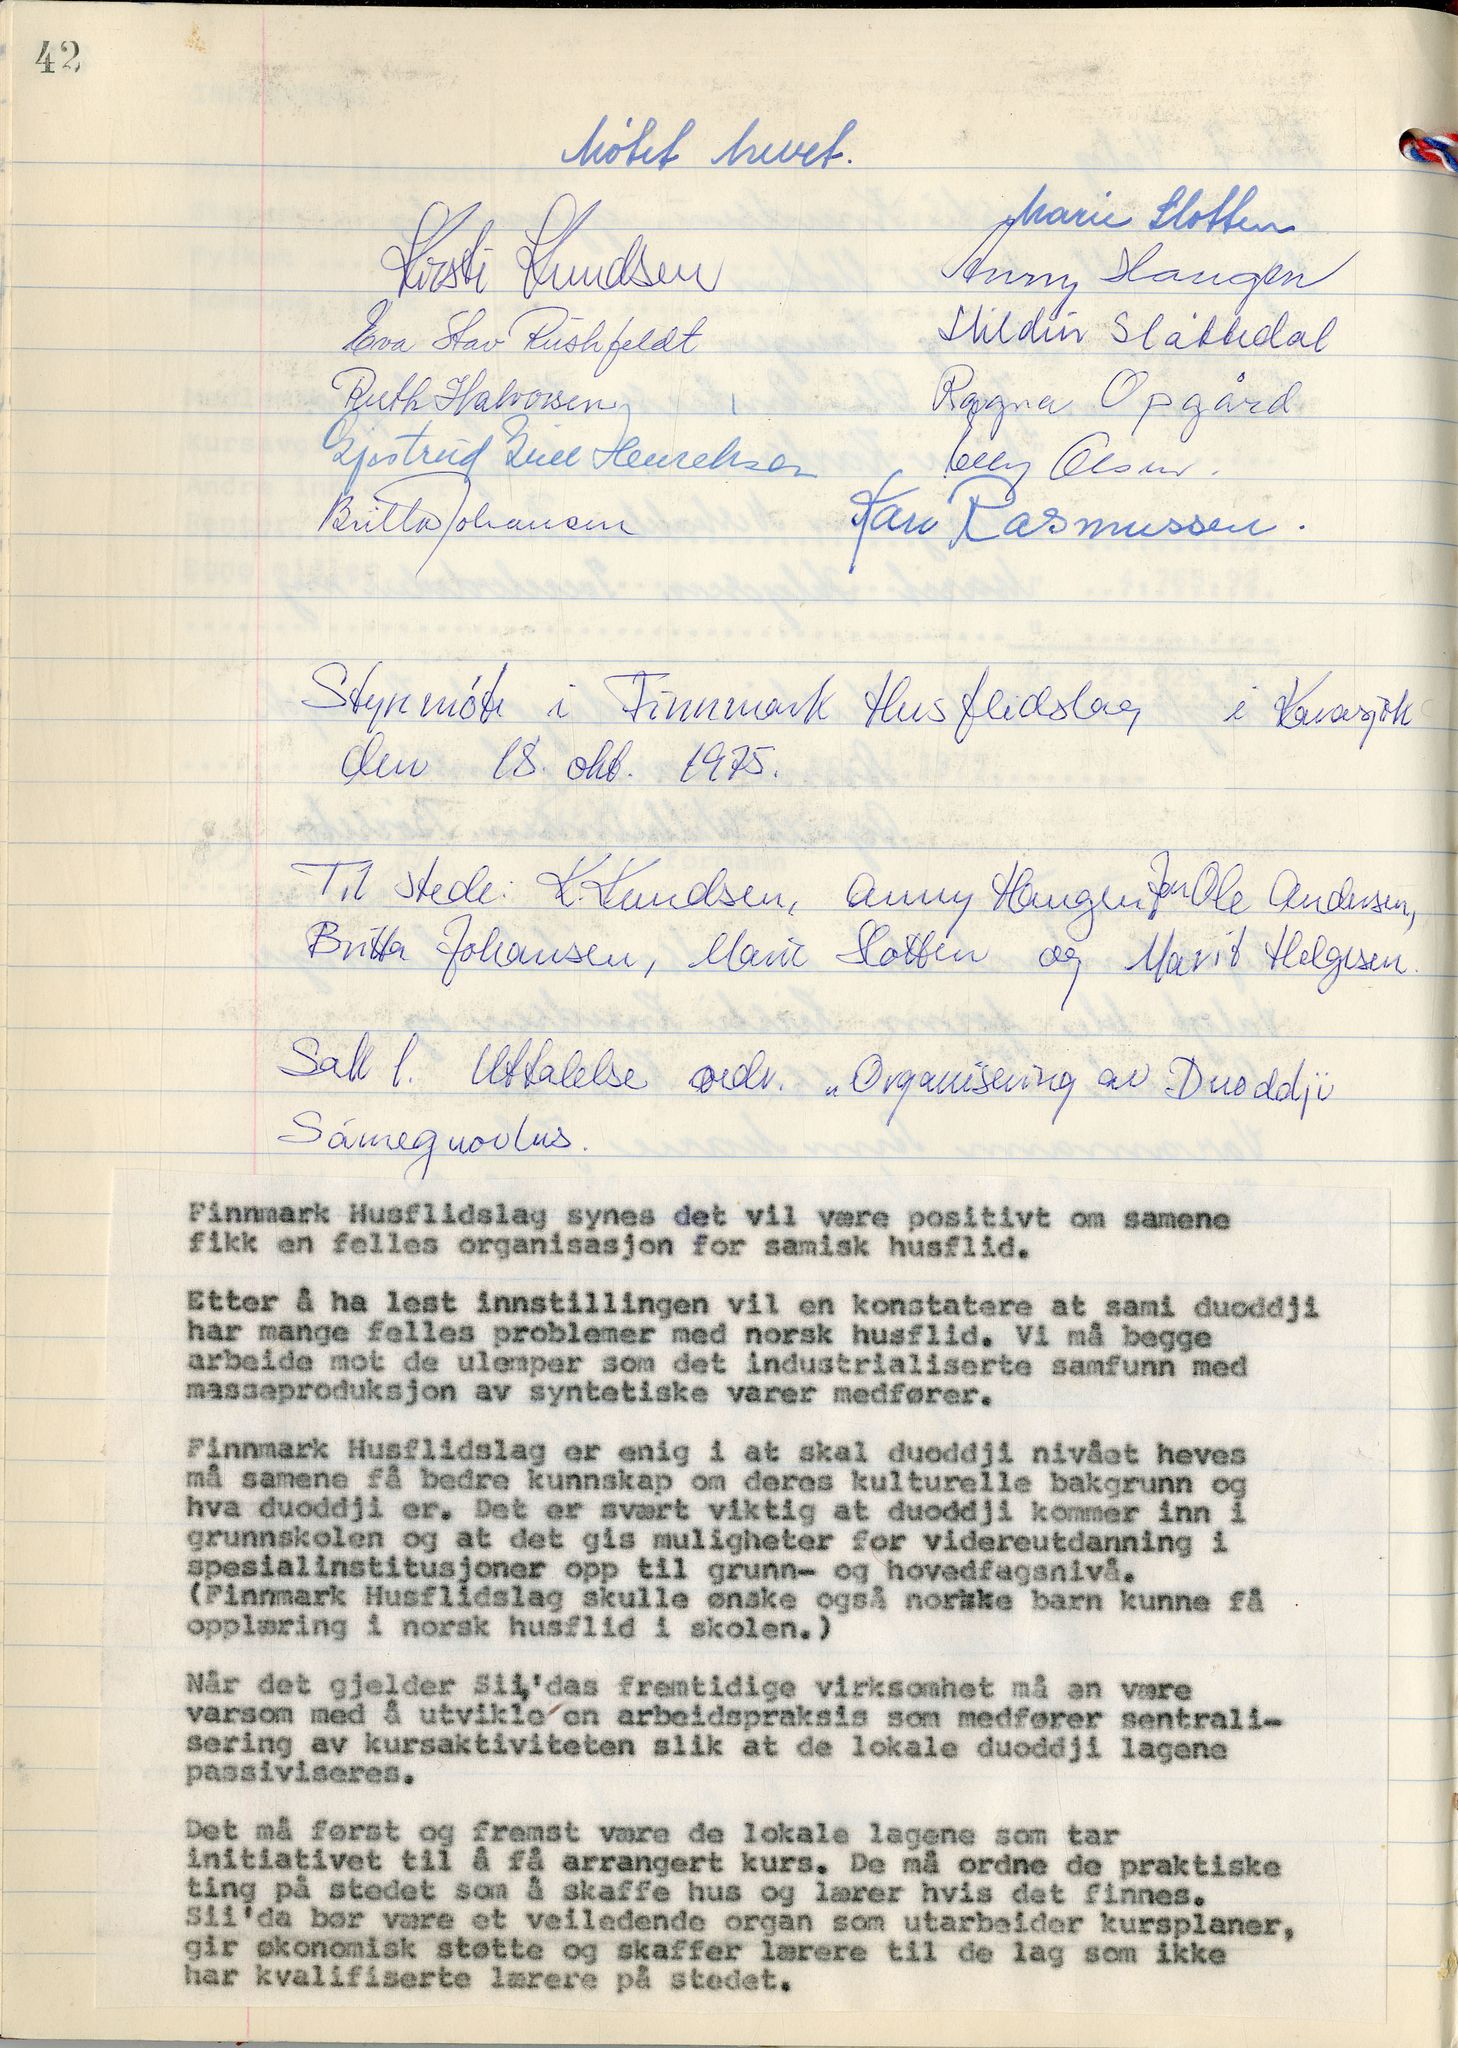 42
Møtet hevet.
Kirsti Knudsen
Eva Stav Rushfeldt
Ruth Halvorsen
Gjertrud Henriksen
Britta Johansen
Marie Slotten
Anny Haugen
Hildur Slåttedal
Ragna Opgård
Elly Olsen.
Kari Rasmussen.
Styremøte i Finnmark Husflidslag i Karasjok
den 18. okt. 1975.
Til stede: K. Knudsen, Anny Haugen, Jan Ole Andersen,
Britta Johansen, Marie Slotten og Marit Helgesen.
Sak 1. Uttalelse vedr. „Organisering av Duoddji
Sámeguovlus.
Finnmark Husflidslag synes det vil være positivt om samene
fikk en felles organisasjon for samisk husflid.
Etter å ha lest innstillingen vil en konstatere at sami duoddji
har mange felles problemer med norsk husflid. Vi må begge
arbeide mot de ulemper som det industrialiserte samfunn med
masseproduksjon av syntetiske varer medfører.
Finnmark Husflidslag er enig i at skal duoddji nivået heves
må samene få bedre kunnskap om deres kulturelle bakgrunn og
hva duoddji er. Det er svært viktig at duoddji kommer inn i
grunnskolen og at det gis muligheter for videreutdanning i
spesialinstitusjoner opp til grunn- og hovedfagsnivå.
(Finnmark Husflidslag skulle ønske også norske barn kunne få
opplæring i norsk husflid i skolen.)
Når det gjelder Sii'das fremtidige virksomhet må en være
varsom med å utvikle en arbeidspraksis som medfører sentrali-
sering av kursaktiviteten slik at de lokale duoddji lagene
passiviseres.
Det må først og fremst være de lokale lagene som tar
initiativet til å få arrangert kurs. De må ordne de praktiske
ting på stedet som å skaffe hus og lærer hvis det finnes.
Sii'da bør være et veiledende organ som utarbeider kursplaner,
gir økonomisk støtte og skaffer lærere til de lag som ikke
har kvalifiserte lærere på stedet.